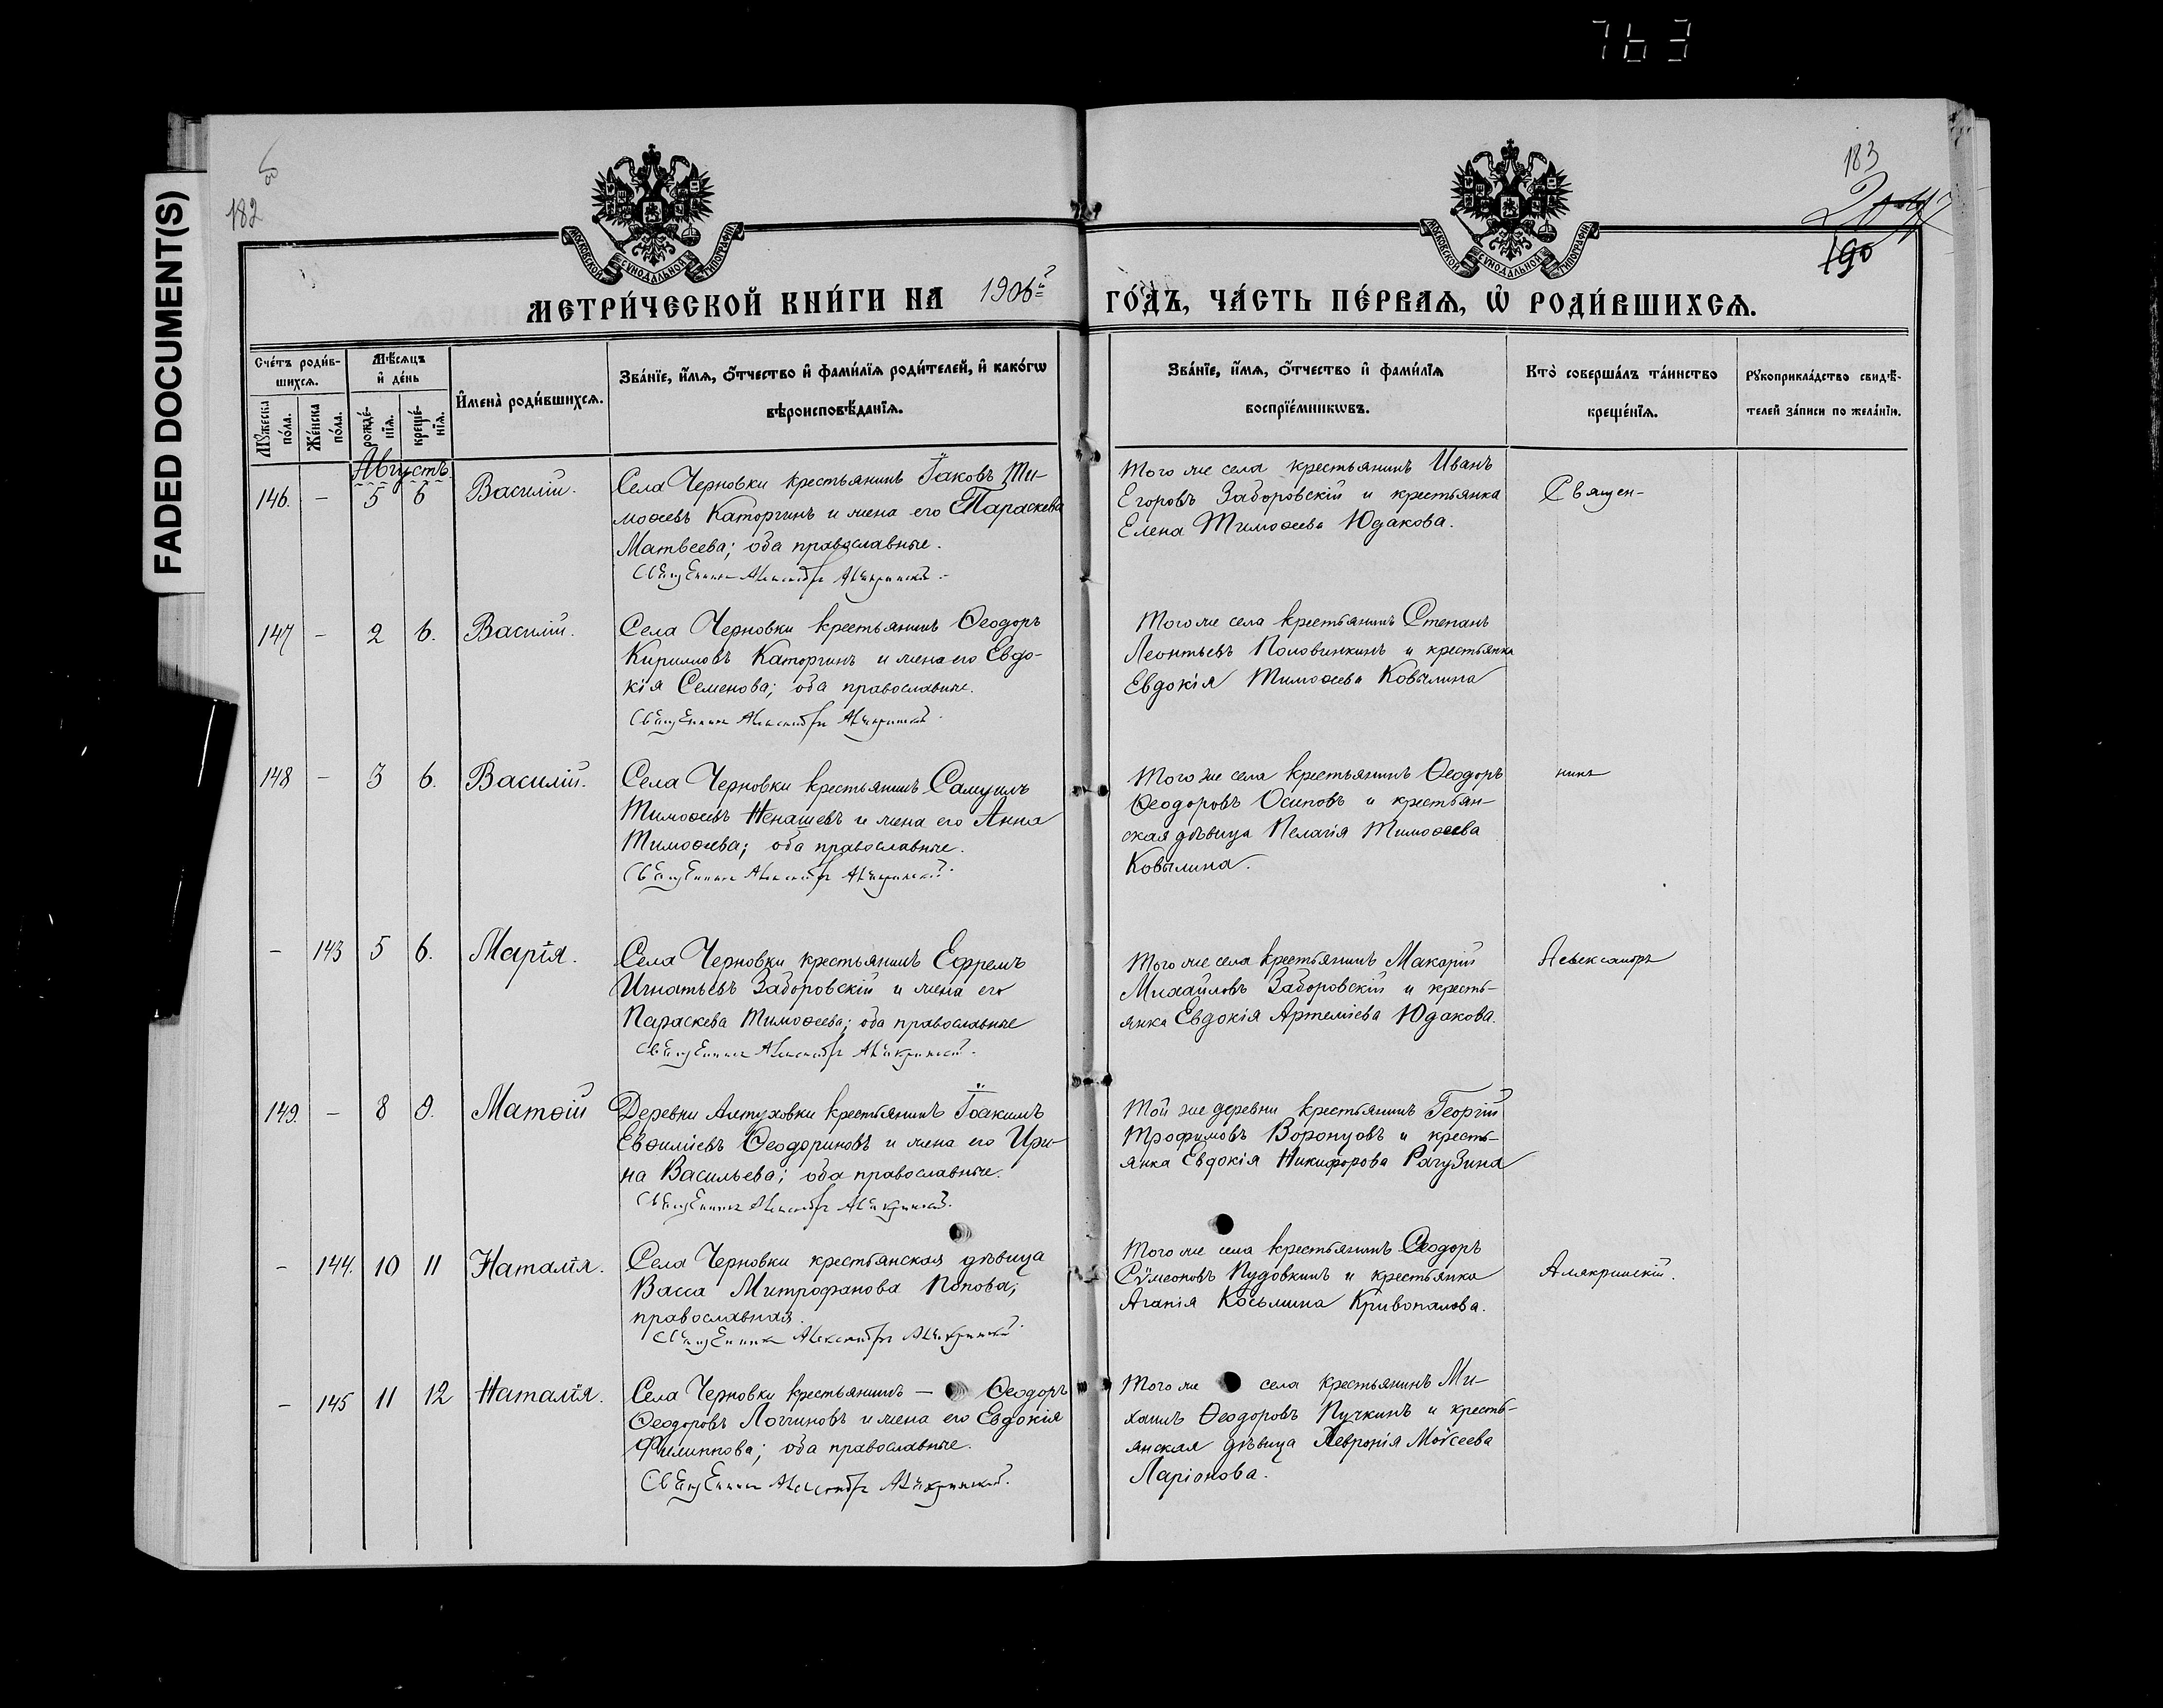 763
FADED DOCUMENT(S)
182
183
190
МОСКОВСКОЙ СУНОДАЛЬНОЙ ТИПОГРАФІИ
МОСКОВСКОЙ СУНОДАЛЬНОЙ ТИПОГРАФІИ
МЕТРИ́ЧЕСКОЙ КНИ́ГИ НА 1906й ГО́ДЪ, ЧА́СТЬ ПЕ́РВАѦ, Ѡ҆ РОДИ́ВШИХСѦ.
Сче́тъ роди́в-
шихсѧ.
Мѣ́сѧцъ
и҆ де́нь
Мꙋ́жеска
по́ла.
Же́нска
по́ла.
рожде́-
нїѧ.
креще́-
нїѧ.
И҆мена̀ роди́вшихсѧ.
Зва́нїе, и҆́мѧ, ѻ҆́тчество и҆ фами́лїѧ роди́телей, и҆ како́гѡ
вѣроисповѣ́данїѧ.
Зва́нїе, и҆́мѧ, ѻ҆́тчество и҆ фами́лїѧ
воспрїе́мникѡвъ.
Кто̀ соверша́лъ та́инство
креще́нїѧ.
Рꙋкоприкла́дство свидѣ́-
телей за́писи по жела́нїю.
Августъ.
146. - 5 6 Василій. Села Черновки крестьянинъ Іаковъ Ти-
моѳеевъ Каторгинъ и жена его Параскева
Матвеева; оба православные.
Священникъ Александръ Алякринскій.
Того же села крестьянинъ Иванъ
Егоровъ Заборовскій и крестьянка
Елена Тимоѳеева Юдакова.
Священ-
147 - 2 6. Василій. Села Черновки крестьянинъ Ѳеодоръ
Кирилловъ Каторгинъ и жена его Евдо-
кія Семенова; оба православные.
Священникъ Александръ Алякринскій.
Того же села крестьянинъ Степанъ
Леонтьевъ Половинкинъ и крестьянка
Евдокія Тимоѳеева Ковылина
148 - 3 6. Василій. Села Черновки крестьянинъ Самуилъ
Тимоѳеевъ Ненашевъ и жена его Анна
Тимоѳеева; оба православные.
Священникъ Александръ Алякринскій.
Того же села крестьянинъ Ѳеодоръ
Ѳеодоровъ Осиповъ и крестьян-
ская дѣвица Пелагія Тимоѳеева
Ковылина.
никъ
- 143 5 6. Марія. Села Черновки крестьянинъ Ефремъ
Игнатьевъ Заборовскій и жена его
Параскева Тимоѳеева; оба православные
Священникъ Александръ Алякринскій.
Того же села крестьянинъ Макарій
Михайловъ Заборовскій и кресть-
янка Евдокія Артеміева Юдакова.
Александръ
149. - 8 9. Матѳій Деревни Алтуховки крестьянинъ Іоакимъ
Евѳиміевъ Ѳеодориновъ и жена его Ири-
на Васильева; оба православные.
Священникъ Александръ Алякринскій.
Той же деревни крестьянинъ Георгій
Трофимовъ Воронцовъ и кресть-
янка Евдокія Никифорова Рагузина
- 144. 10 11 Наталія. Села Черновки крестьянская дѣвица
Васса Митрофанова Попова;
православная.
Священникъ Александръ Алякринскій
Того же села крестьянинъ Ѳеодоръ
Сѵмеоновъ Пудовкинъ и крестьянка
Агапія Косьмина Кривопалова.
Алякринскій.
- 145 11 12 Наталія. Села Черновки крестьянинъ — Ѳеодоръ
Ѳеодоровъ Логгиновъ и жена его Евдокія
Филиппова; оба православные.
Священникъ Александръ Алякринскій.
Того же села крестьянинъ Ми-
хаилъ Ѳеодоровъ Пучкинъ и кресть-
янская дѣвица Февронія Моѵсеева
Ларіонова.